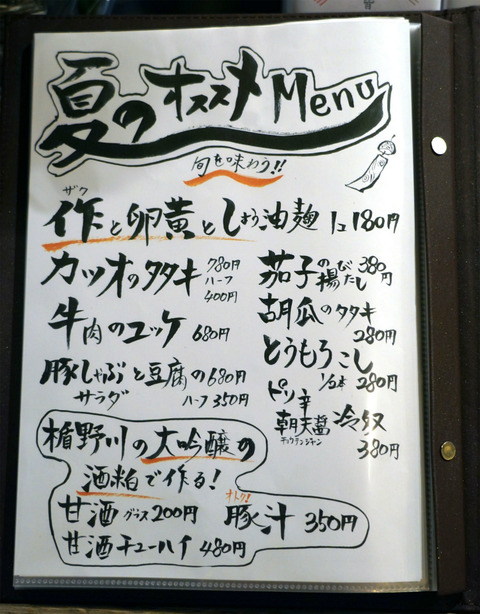 夏のオススメMenu
旬を味わう!!
ザク
作と卵黄としょう油麹 1コ 180円
カツオのタタキ 780円
ハーフ
400円
牛肉のユッケ 680円
豚しゃぶと豆腐の 680円
サラダ ハーフ 350円
茄子の揚びたし 380円
胡瓜のタタキ
280円
とうもろこし
1/2本 280円
ピリ辛
朝天醤 冷奴
チョウテンジャン
380円
楯野川の大吟醸の
酒粕で作る!
甘酒 グラス 200円
甘酒チューハイ 480円
オトク!
豚汁 350円